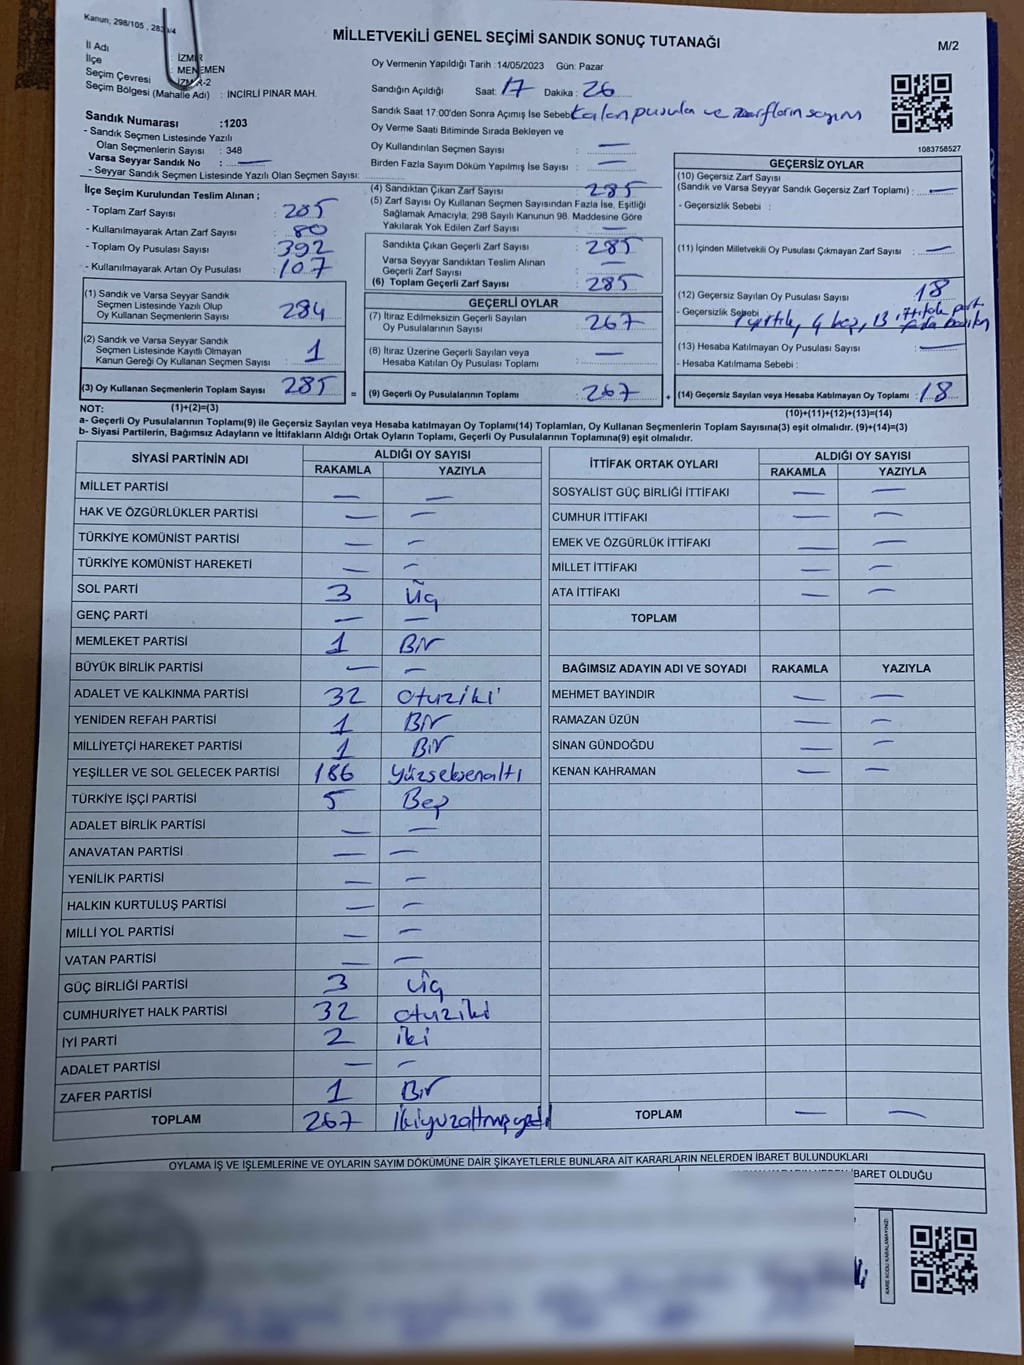 Kanun, 298/105
MİLLETVEKİLİ GENEL SEÇİMİ SANDIK SONUÇ TUTANAĞI
M/2
İl Adı : İZMİR
İlçe : MENEMEN
Seçim Çevresi : İZMİR-2
Seçim Bölgesi (Mahalle Adı) : İNCİRLİ PINAR MAH.
Oy Vermenin Yapıldığı Tarih :14/05/2023 Gün: Pazar
Sandığın Açıldığı Saat: 17 Dakika : 26
Sandık Saat 17:00'den Sonra Açımış İse Sebebi Kalan pusula ve zarfların sayım
Oy Verme Saati Bitiminde Sırada Bekleyen ve
Oy Kullandırılan Seçmen Sayısı : —
Birden Fazla Sayım Döküm Yapılmış İse Sayısı : —
1083758527
Sandık Numarası :1203
- Sandık Seçmen Listesinde Yazılı
Olan Seçmenlerin Sayısı : 348
Varsa Seyyar Sandık No : —
- Seyyar Sandık Seçmen Listesinde Yazılı Olan Seçmen Sayısı:
İlçe Seçim Kurulundan Teslim Alınan ;
- Toplam Zarf Sayısı
- Kullanılmayarak Artan Zarf Sayısı : 80
- Toplam Oy Pusulası Sayısı : 392
- Kullanılmayarak Artan Oy Pusulası : 107
(1) Sandık ve Varsa Seyyar Sandık
Seçmen Listesinde Yazılı Olup
Oy Kullanan Seçmenlerin Sayısı : 284
(2) Sandık ve Varsa Seyyar Sandık
Seçmen Listesinde Kayıtlı Olmayan
Kanun Gereği Oy Kullanan Seçmen Sayısı : 1
(3) Oy Kullanan Seçmenlerin Toplam Sayısı : 285
(1)+(2)=(3)
(4) Sandıktan Çıkan Zarf Sayısı : 285
(5) Zarf Sayısı Oy Kullanan Seçmen Sayısından Fazla İse, Eşitliği
Sağlamak Amacıyla, 298 Sayılı Kanunun 98. Maddesine Göre
Yakılarak Yok Edilen Zarf Sayısı : —
Sandıkta Çıkan Geçerli Zarf Sayısı : 285
Varsa Seyyar Sandıktan Teslim Alınan
Geçerli Zarf Sayısı : —
(6) Toplam Geçerli Zarf Sayısı : 285
GEÇERLİ OYLAR
(7) İtiraz Edilmeksizin Geçerli Sayılan
Oy Pusulalarının Sayısı : 267
(8) İtiraz Üzerine Geçerli Sayılan veya
Hesaba Katılan Oy Pusulası Toplamı : —
= (9) Geçerli Oy Pusulalarının Toplamı : 267
GEÇERSİZ OYLAR
(10) Geçersiz Zarf Sayısı
(Sandık ve Varsa Seyyar Sandık Geçersiz Zarf Toplamı) : —
- Geçersizlik Sebebi :
(11) İçinden Milletvekili Oy Pusulası Çıkmayan Zarf Sayısı : —
(12) Geçersiz Sayılan Oy Pusulası Sayısı : 18
- Geçersizlik Sebebi 1 yırtık, 4 boş, 13 ittifak part. fazla basılan
(13) Hesaba Katılmayan Oy Pusulası Sayısı : —
- Hesaba Katılmama Sebebi :
+ (14) Geçersiz Sayılan veya Hesaba Katılmayan Oy Toplamı : 18
(10)+(11)+(12)+(13)=(14)
NOT:
a- Geçerli Oy Pusulalarının Toplamı(9) ile Geçersiz Sayılan veya Hesaba katılmayan Oy Toplamı(14) Toplamları, Oy Kullanan Seçmenlerin Toplam Sayısına(3) eşit olmalıdır. (9)+(14)=(3)
b- Siyasi Partilerin, Bağımsız Adayların ve İttifakların Aldığı Ortak Oyların Toplamı, Geçerli Oy Pusulalarının Toplamına(9) eşit olmalıdır.
SİYASİ PARTİNİN ADI
ALDIĞI OY SAYISI
RAKAMLA YAZIYLA
MİLLET PARTİSİ — —
HAK VE ÖZGÜRLÜKLER PARTİSİ — —
TÜRKİYE KOMÜNİST PARTİSİ — —
TÜRKİYE KOMÜNİST HAREKETİ — —
SOL PARTİ 3 Üç
GENÇ PARTİ — —
MEMLEKET PARTİSİ 1 Bir
BÜYÜK BİRLİK PARTİSİ — —
ADALET VE KALKINMA PARTİSİ 32 otuziki
YENİDEN REFAH PARTİSİ 1 Bir
MİLLİYETÇİ HAREKET PARTİSİ 1 Bir
YEŞİLLER VE SOL GELECEK PARTİSİ 186 yüzseksenaltı
TÜRKİYE İŞÇİ PARTİSİ 5 Beş
ADALET BİRLİK PARTİSİ — —
ANAVATAN PARTİSİ — —
YENİLİK PARTİSİ — —
HALKIN KURTULUŞ PARTİSİ — —
MİLLİ YOL PARTİSİ — —
VATAN PARTİSİ — —
GÜÇ BİRLİĞİ PARTİSİ 3 üç
CUMHURİYET HALK PARTİSİ 32 otuziki
İYİ PARTİ 2 iki
ADALET PARTİSİ — —
ZAFER PARTİSİ 1 Bir
TOPLAM 267 ikiyüzaltmışyedi
İTTİFAK ORTAK OYLARI
ALDIĞI OY SAYISI
RAKAMLA YAZIYLA
SOSYALİST GÜÇ BİRLİĞİ İTTİFAKI — —
CUMHUR İTTİFAKI — —
EMEK VE ÖZGÜRLÜK İTTİFAKI — —
MİLLET İTTİFAKI — —
ATA İTTİFAKI — —
TOPLAM
BAĞIMSIZ ADAYIN ADI VE SOYADI RAKAMLA YAZIYLA
MEHMET BAYINDIR — —
RAMAZAN ÜZÜN — —
SİNAN GÜNDOĞDU — —
KENAN KAHRAMAN — —
TOPLAM — —
OYLAMA İŞ VE İŞLEMLERİNE VE OYLARIN SAYIM DÖKÜMÜNE DAİR ŞİKAYETLERLE BUNLARA AİT KARARLARIN NELERDEN İBARET BULUNDUKLARI
İBARET OLDUĞU
KARE KODU KARALAMAYINIZ!